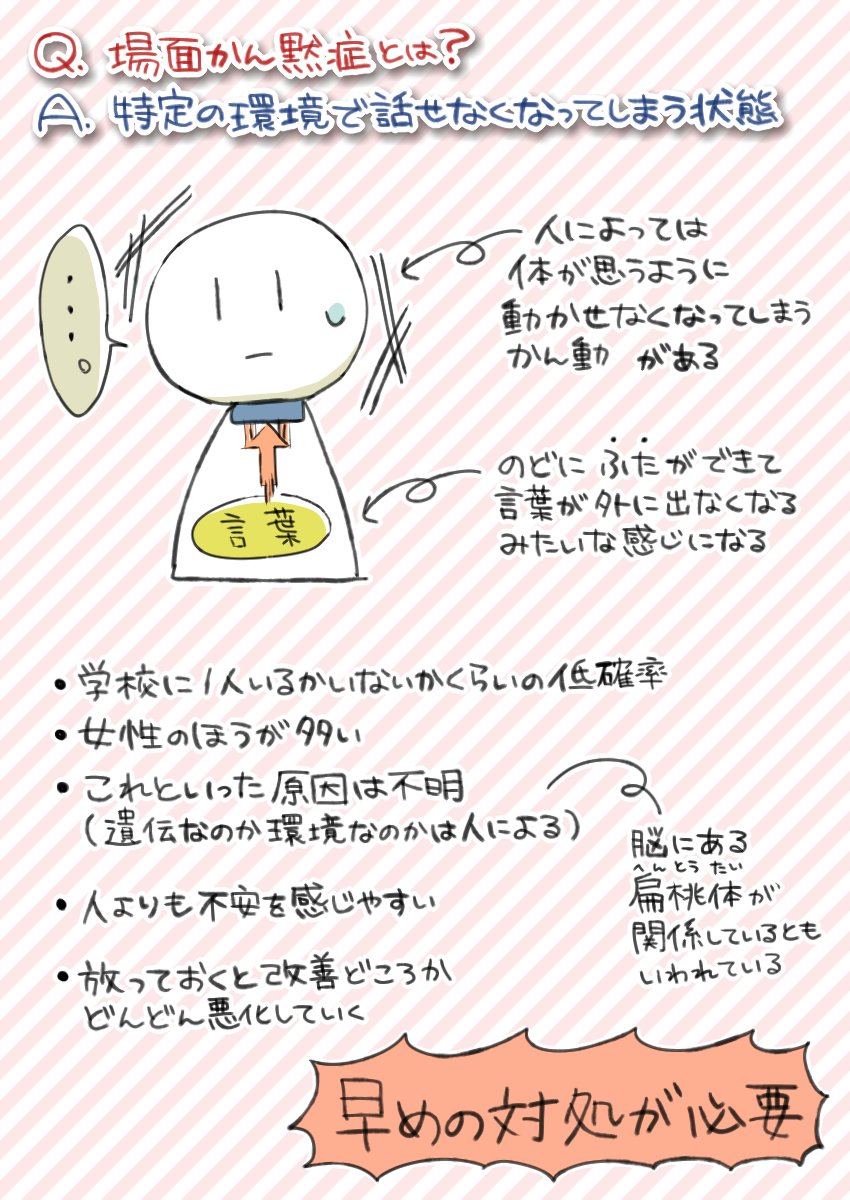 Q. 場面かん黙症とは？
A. 特定の環境で話せなくなってしまう状態
・・・。
人によっては
体が思うように
動かせなくなってしまう
かん動 がある
のどに ふたができて
言葉が外に出なくなる
みたいな感じになる
言葉
・学校に1人いるかいないかくらいの低確率
・女性のほうが多い
・これといった原因は不明
(遺伝なのか環境なのかは人による)
脳にある
へんとうたい
扁桃体が
関係しているとも
いわれている
・人よりも不安を感じやすい
・放っておくと改善どころか
どんどん悪化していく
早めの対処が必要